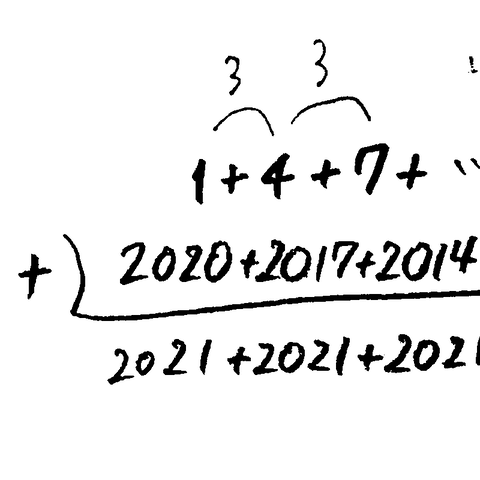 3 3
1+4+7+ ...
+) 2020+2017+2014
2021+2021+2021